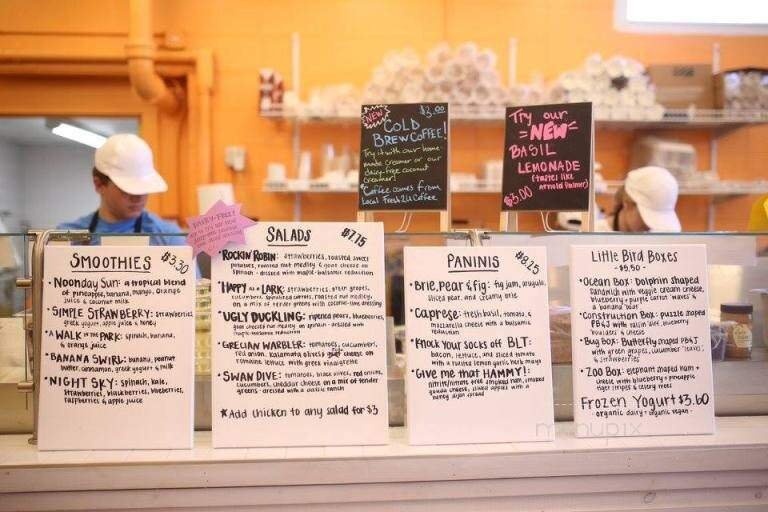 NEW
$3.00
COLD
BREW COFFEE!
Try it with our home-
made creamer or our
dairy-free coconut
creamer!
*Coffee comes from
local Fresh 2 U Coffee
Try our
NEW
BASIL
LEMONADE
(tastes like
Arnold Palmer)
$3.00
DAIRY-FREE?
SMOOTHIES
$3.50
• NOONDAY SUN: a tropical blend
of pineapple, banana, mango, orange
juice & coconut milk
• SIMPLE STRAWBERRY: strawberries,
greek yogurt, apple juice & honey
• A WALK IN THE PARK: spinach, banana,
& orange juice
• BANANA SWIRL: banana, peanut
butter, cinnamon, greek yogurt & milk
• NIGHT SKY: spinach, kale,
strawberries, blackberries, blueberries,
raspberries & apple juice
SALADS
$7.75
• ROCKIN' ROBIN: strawberries, roasted sweet
potatoes, roasted nut medley, & goat cheese on
spinach - dressed with maple-balsamic reduction
• HAPPY AS A LARK: strawberries, green grapes,
cucumbers, spiralized carrots, roasted nut medley,
on a mix of tender greens with creamy-lime dressing
• UGLY DUCKLING: ripened pears, blueberries,
goat cheese nut medley on spinach - dressed with
maple-balsamic reduction
• GRECIAN WARBLER: tomatoes, cucumbers,
red onion, kalamata olives, feta cheese on
romaine lettuce, with greek vinaigrette
• SWAN DIVE: tomatoes, black olives, red onions,
cucumbers, cheddar cheese on a mix of tender
greens - dressed with a classic ranch
*Add chicken to any salad for $3
PANINIS
$8.25
• Brie, Pear & fig: fig jam, arugula,
sliced pear, and creamy brie
• Caprese: fresh basil, tomato, &
mozzarella cheese with a balsamic
reduction
• Knock your socks off BLT:
bacon, lettuce, and sliced tomato
with a roasted lemon garlic herb mayo
• Give me that HAMMY!:
nitrite/nitrate free smoked ham, smoked
gouda cheese, sliced apples with a
honey dijon spread
Little Bird Boxes
- $5.50 -
• Ocean Box: Dolphin shaped
sandwich with veggie cream cheese,
blueberry + purple carrot "waves" &
a "banana boat"
• Construction Box: puzzle shaped
PB&J with raisin "dirt", blueberry
• Bug Box: Butterfly shaped PB&J
with green grapes, cucumber "leaves",
& strawberries
• Zoo Box: elephant shaped ham +
cheese with blueberry + pineapple
tiger stripes & celery trees
Frozen Yogurt $3.60
- organic dairy + organic vegan -
menupix